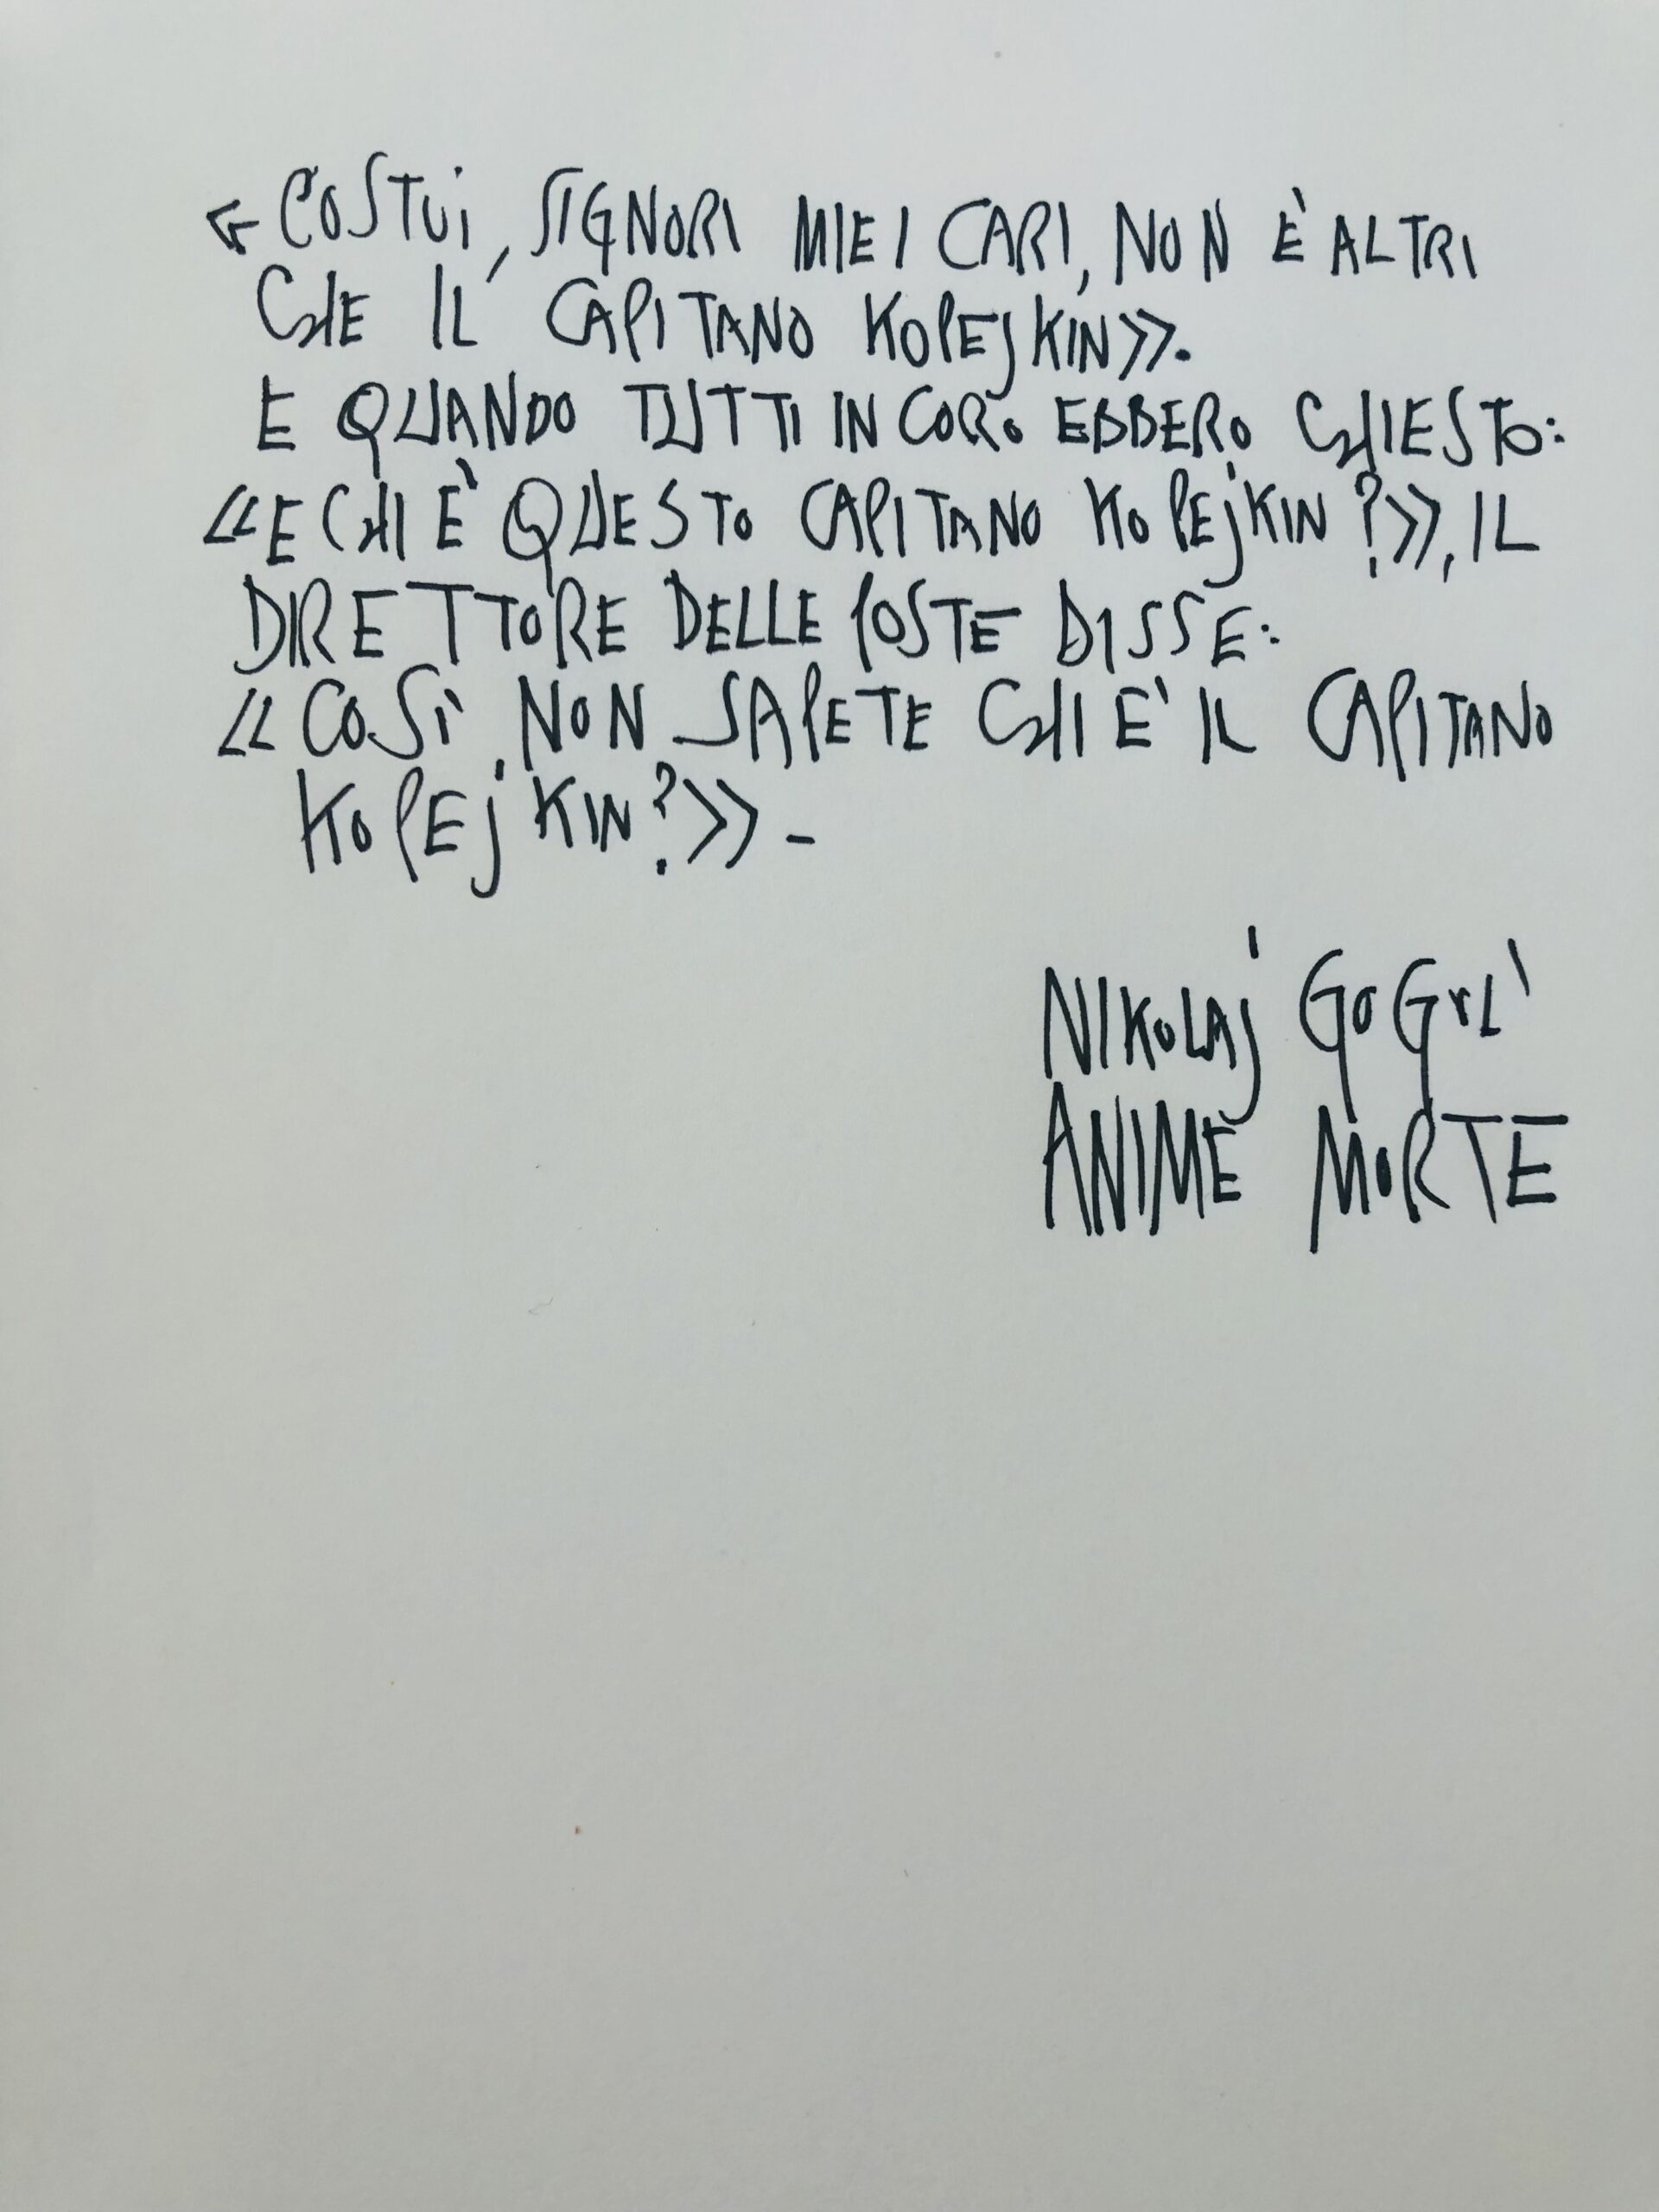 «COSTUI, SIGNORI MIEI CARI, NON È ALTRI
CHE IL CAPITANO KOPEJKIN».
E QUANDO TUTTI IN CORO EBBERO CHIESTO:
«E CHI È QUESTO CAPITANO KOPEJKIN?», IL
DIRETTORE DELLE POSTE DISSE:
«COSÌ, NON SAPETE CHI È IL CAPITANO
KOPEJKIN?» -
NIKOLAJ GOGOL'
ANIME MORTE